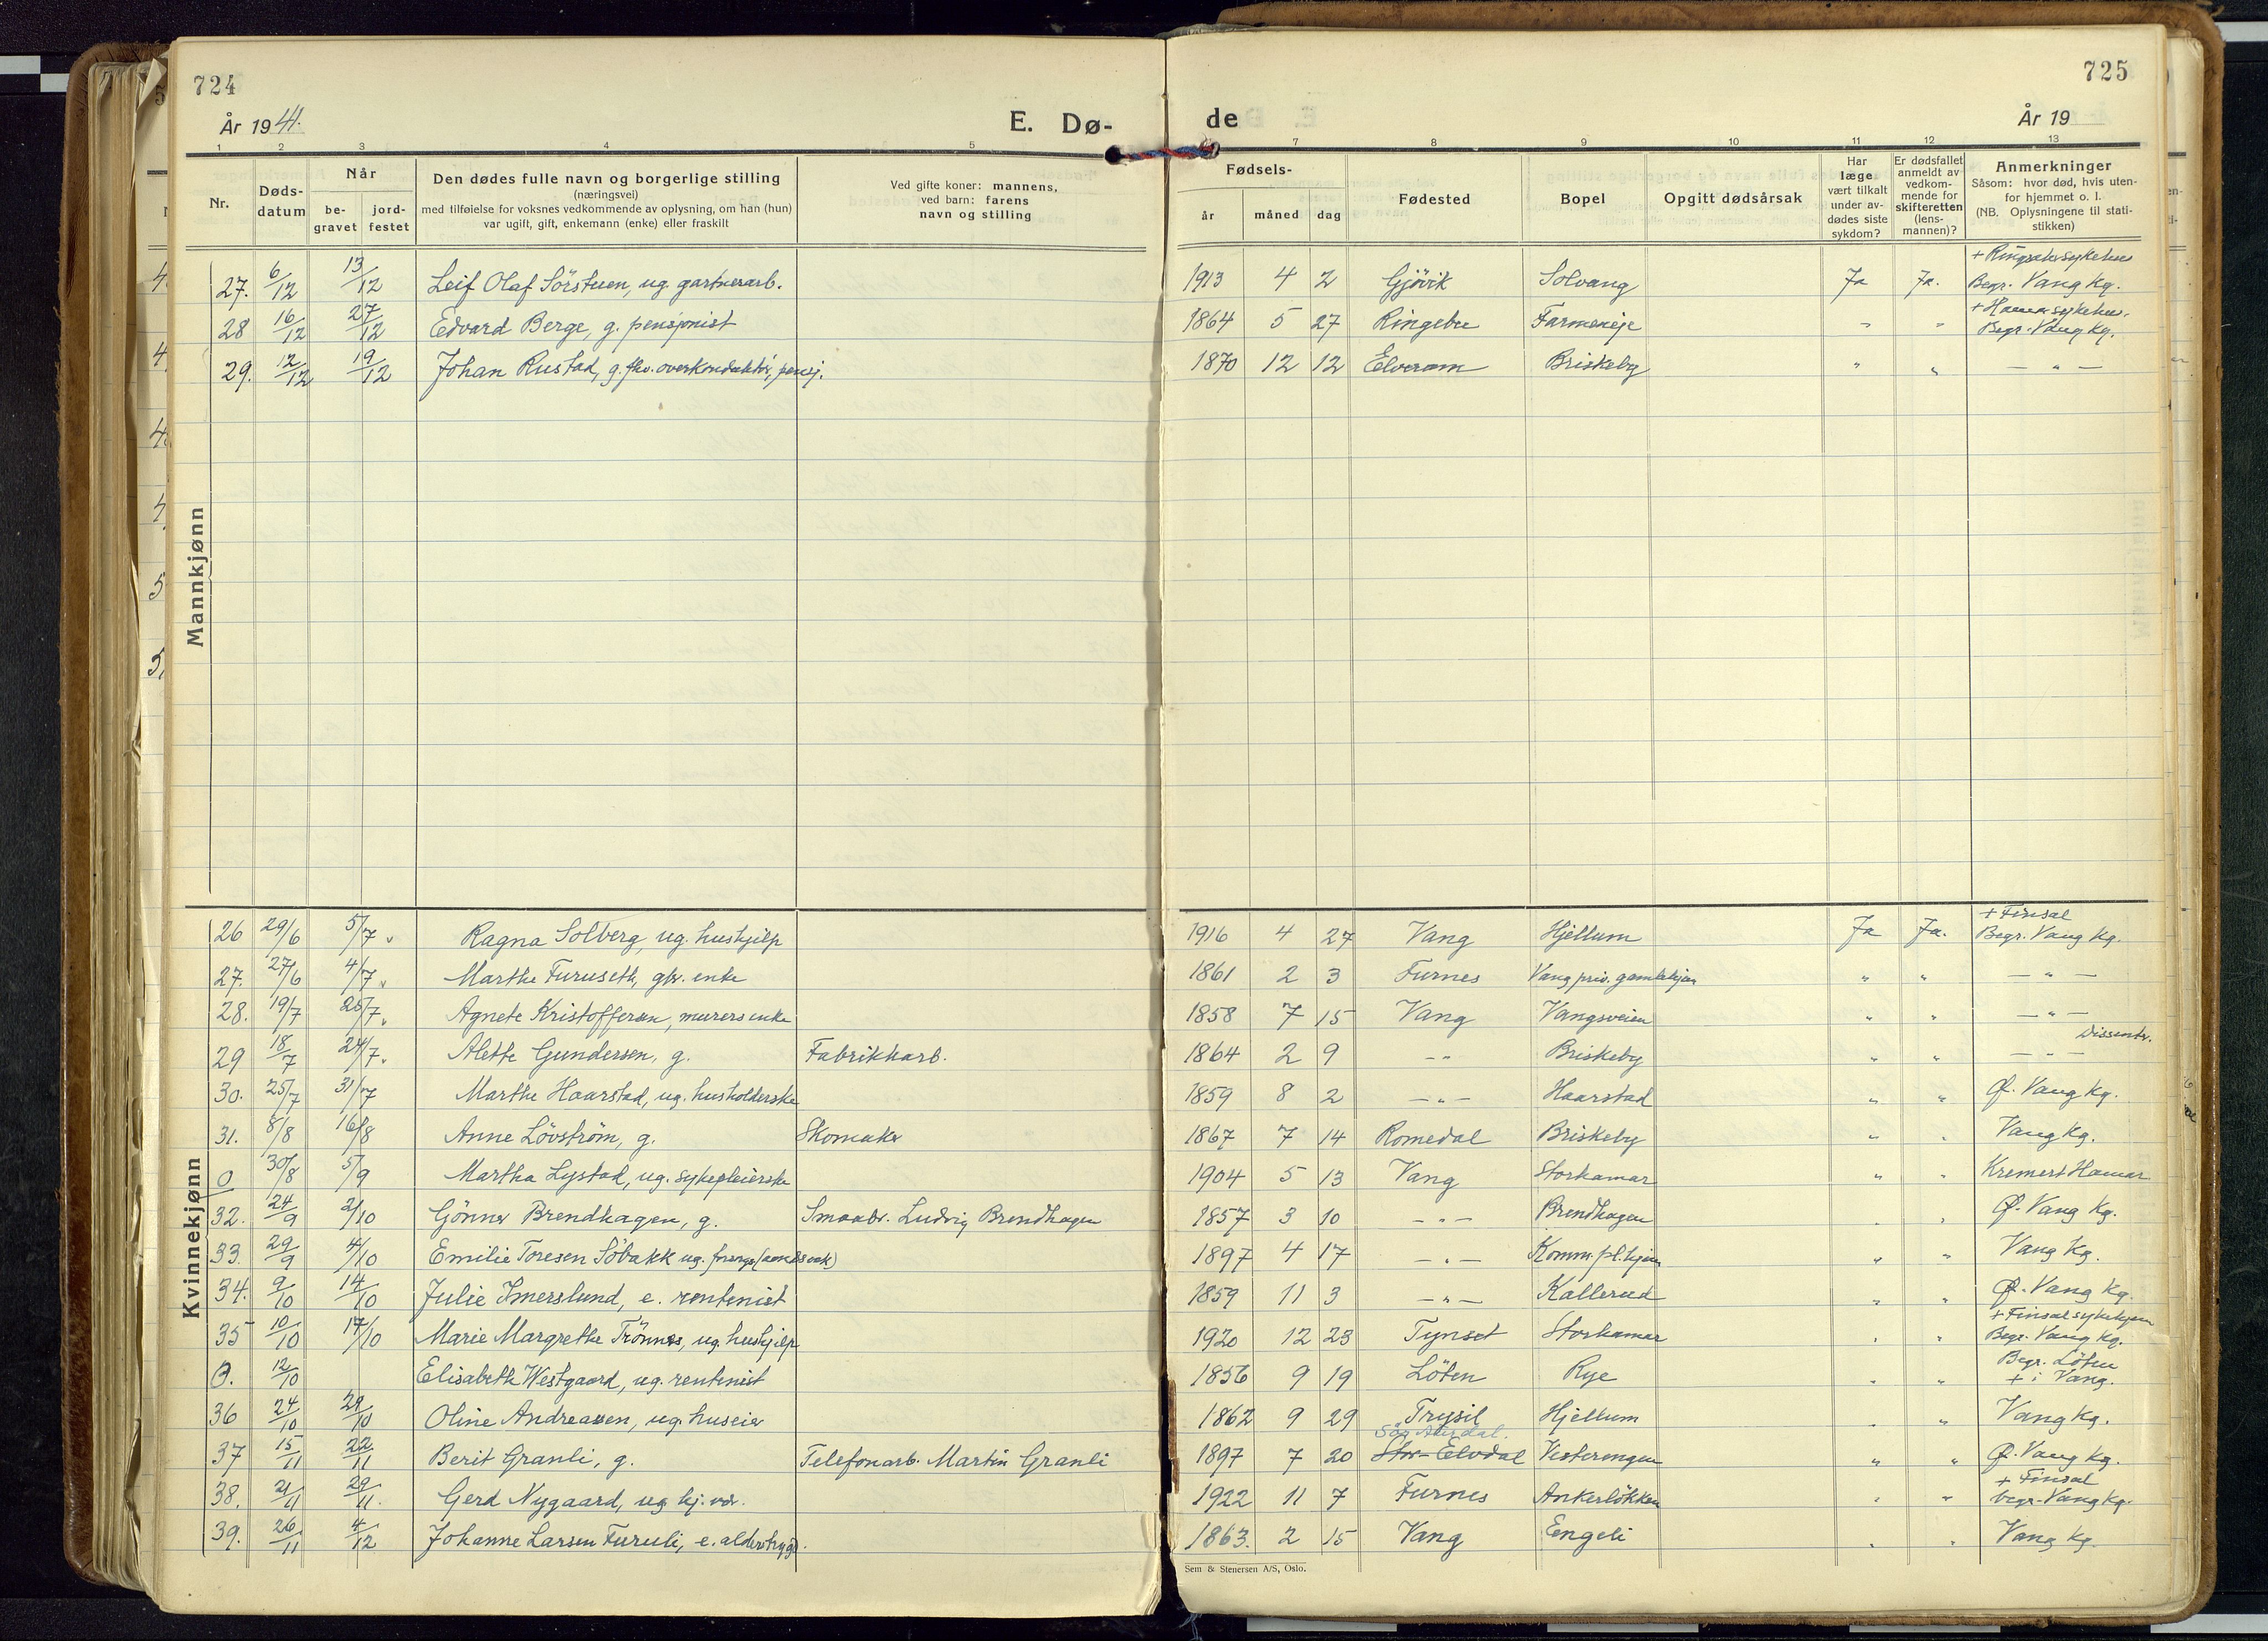 724
År 1941.
E. Dø-
1 2 3 4 5
Nr.
Døds-datum
Når
be-gravet
jord-festet
Den dødes fulle navn og borgerlige stilling
(næringsvei)
med tilføielse for voksnes vedkommende av oplysning, om han (hun)
var ugift, gift, enkemann (enke) eller fraskilt
Ved gifte koner: mannens,
ved barn: farens
navn og stilling
725
de
År 19
7 8 9 10 11 12 13
Fødsels-
år måned dag
Fødested
Bopel
Opgitt dødsårsak
Har læge vært tilkalt under av-dødes siste sykdom?
Er dødsfallet anmeldt av vedkom-mende for skifteretten (lens-mannen)?
Anmerkninger
Såsom: hvor død, hvis uten-
for hjemmet o. l.
(NB. Oplysningene til stati-
stikken)
Mannkjønn
27. 6/12 13/12 Leif Olaf Sörstuen, ug. gartnerarb. 1913 4 2 Gjövik Solvang Ja Ja. + Ringsaker sykehus Begr. Vang kg.
28 16/12 27/12 Edvard Berge, g. pensjonist 1864 5 27 Ringebu Farmenije " " + Hamar sykehus. Begr. Vang kg.
29. 12/12 19/12 Johan Rustad, g. fhv. overkonduktör, pensj. 1870 12 12 Elverum Briskeby " " — " —
Kvinnekjønn
26 29/6 5/7 Ragna Solberg, ug. hushjelp 1916 4 27 Vang Hjellum Ja Ja. + Finsal Begr. Vang kg.
27. 27/6 4/7 Marthe Furuseth, gbr. enke 1861 2 3 Furnes Vang priv. gamlehjem " " — " —
28. 19/7 25/7 Agnete Kristoffersen, murers enke 1858 7 15 Vang Vangsveien " " — " —
29 18/7 24/7 Alette Gundersen, g. Fabrikkarb. 1864 2 9 - - Briskeby " " — " — Dissenter.
30. 25/7 31/7 Marthe Haarstad, ug. husholderske 1859 8 2 — " — Haarstad " " Ø. Vang kg.
31. 8/8 16/8 Anne Lövström, g. Skomaker 1867 7 14 Romedal Briskeby " " Vang kg.
0 30/8 5/9 Martha Lystad, ug. sykepleierske 1904 5 13 Vang Storhamar " " Kremert Hamar
32. 24/9 2/10 Gönner Brendhagen, g. Smaabr. Ludvig Brendhagen 1857 3 10 — " — Brendhagen " " Ø. Vang kg.
33. 29/9 4/10 Emilie Toresen Söbakk ug. forsorgs (aandssvak) 1897 4 17 — " — Komm. pl.hjem " " Vang kg.
34. 9/10 14/10 Julie Imerslund, e. rentenist 1859 11 3 — " — Kallerud " " Ø. Vang kg.
35 10/10 17/10 Marie Margrethe Trönnes, ug. hushjelp 1920 12 23 Tynset Storhamar " " + Finsal sykehjem Begr. Vang kg.
0. 12/10 Elisabeth Westgaard, ug. rentenist 1856 9 19 Löten Rye " " Begr. Löten + i Vang.
36 24/10 29/10 Oline Andreassen, ug. huseier 1862 9 29 Trysil Hjellum " " Vang kg.
37 15/11 22/11 Berit Granli, g. Telefonarb. Martin Granli 1897 7 20 Sör Aurdal. Stor-Elvdal Vesterengen " " Ø. Vang kg.
38. 21/11 29/11. Gerd Nygaard, ug. hj. vær. 1922 11 7 Furnes Ankerlökken " " + Finsal begr. Vang kg.
39. 26/11 4/12 Johanne Larsen Furuli, e. alderstrygd. 1863. 2 15 Vang Engeli " " Vang kg.
Sem & Stenersen A/S, Oslo.